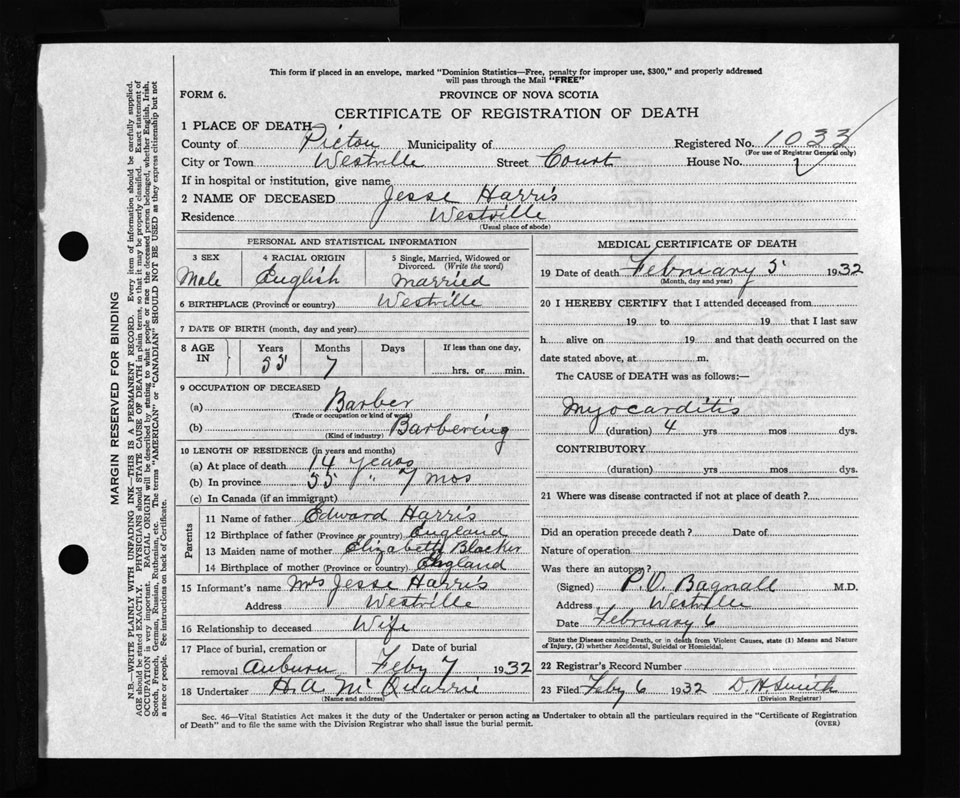 This form if placed in an envelope, marked "Dominion Statistics—Free, penalty for improper use, $300," and properly addressed
will pass through the Mail "FREE"
FORM 6.
PROVINCE OF NOVA SCOTIA
CERTIFICATE OF REGISTRATION OF DEATH
1 PLACE OF DEATH
County of Pictou Municipality of Registered No. 1033
(For use of Registrar General only)
City or Town Westville Street Court House No.
If in hospital or institution, give name
2 NAME OF DECEASED Jesse Harris
Residence Westville
(Usual place of abode)
PERSONAL AND STATISTICAL INFORMATION
3 SEX 4 RACIAL ORIGIN 5 Single, Married, Widowed or
Divorced. (Write the word)
Male English Married
6 BIRTHPLACE (Province or country) Westville
7 DATE OF BIRTH (month, day and year)
8 AGE IN Years Months Days If less than one day,
55 7 hrs. or min.
9 OCCUPATION OF DECEASED
(a) Barber
(Trade or occupation or kind of work)
(b) Barbering
(Kind of industry)
10 LENGTH OF RESIDENCE (in years and months)
(a) At place of death 14 years
(b) In province 55 " 7 mos
(c) In Canada (if an immigrant)
Parents
11 Name of father Edward Harris
12 Birthplace of father (Province or country) England
13 Maiden name of mother Elizabeth Blacker
14 Birthplace of mother (Province or country) England
15 Informant's name Mrs Jesse Harris
Address Westville
16 Relationship to deceased Wife
17 Place of burial, cremation or Date of burial
removal Auburn Feby 7 1932
18 Undertaker H.A McQuarrie
(Name and address)
MEDICAL CERTIFICATE OF DEATH
19 Date of death February 5 1932
(Month, day and year)
20 I HEREBY CERTIFY that I attended deceased from
19 to 19 that I last saw
h alive on 19 and that death occurred on the
date stated above, at m.
The CAUSE of DEATH was as follows:—
Myocarditis
(duration) 4 yrs mos dys.
CONTRIBUTORY
(duration) yrs mos dys.
21 Where was disease contracted if not at place of death?
Did an operation precede death? Date of
Nature of operation
Was there an autopsy?
(Signed) P.O. Bagnall M.D.
Address Westville
Date February 6
State the Disease causing Death, or in death from Violent Causes, state (1) Means and Nature
of Injury, (2) whether Accidental, Suicidal or Homicidal.
22 Registrar's Record Number
23 Filed Feby 6 1932 D.H. Smith
(Division Registrar)
Sec. 46—Vital Statistics Act makes it the duty of the Undertaker or person acting as Undertaker to obtain all the particulars required in the "Certificate of Registration
of Death" and to file the same with the Division Registrar who shall issue the burial permit. (OVER)
MARGIN RESERVED FOR BINDING
N.B.—WRITE PLAINLY WITH UNFADING INK—THIS IS A PERMANENT RECORD. Every item of information should be carefully supplied.
AGE should be stated EXACTLY. PHYSICIANS should STATE CAUSE OF DEATH in plain terms, so that it may be properly classified. Exact statement of
OCCUPATION is very important. RACIAL ORIGIN will be described by stating to what people or race the deceased person belonged, whether English, Irish,
Scotch, French, German, Russian, Ruthenian, etc. The terms "AMERICAN" or "CANADIAN" SHOULD NOT BE USED as they express citizenship but not
a race or people. See instructions on back of Certificate.